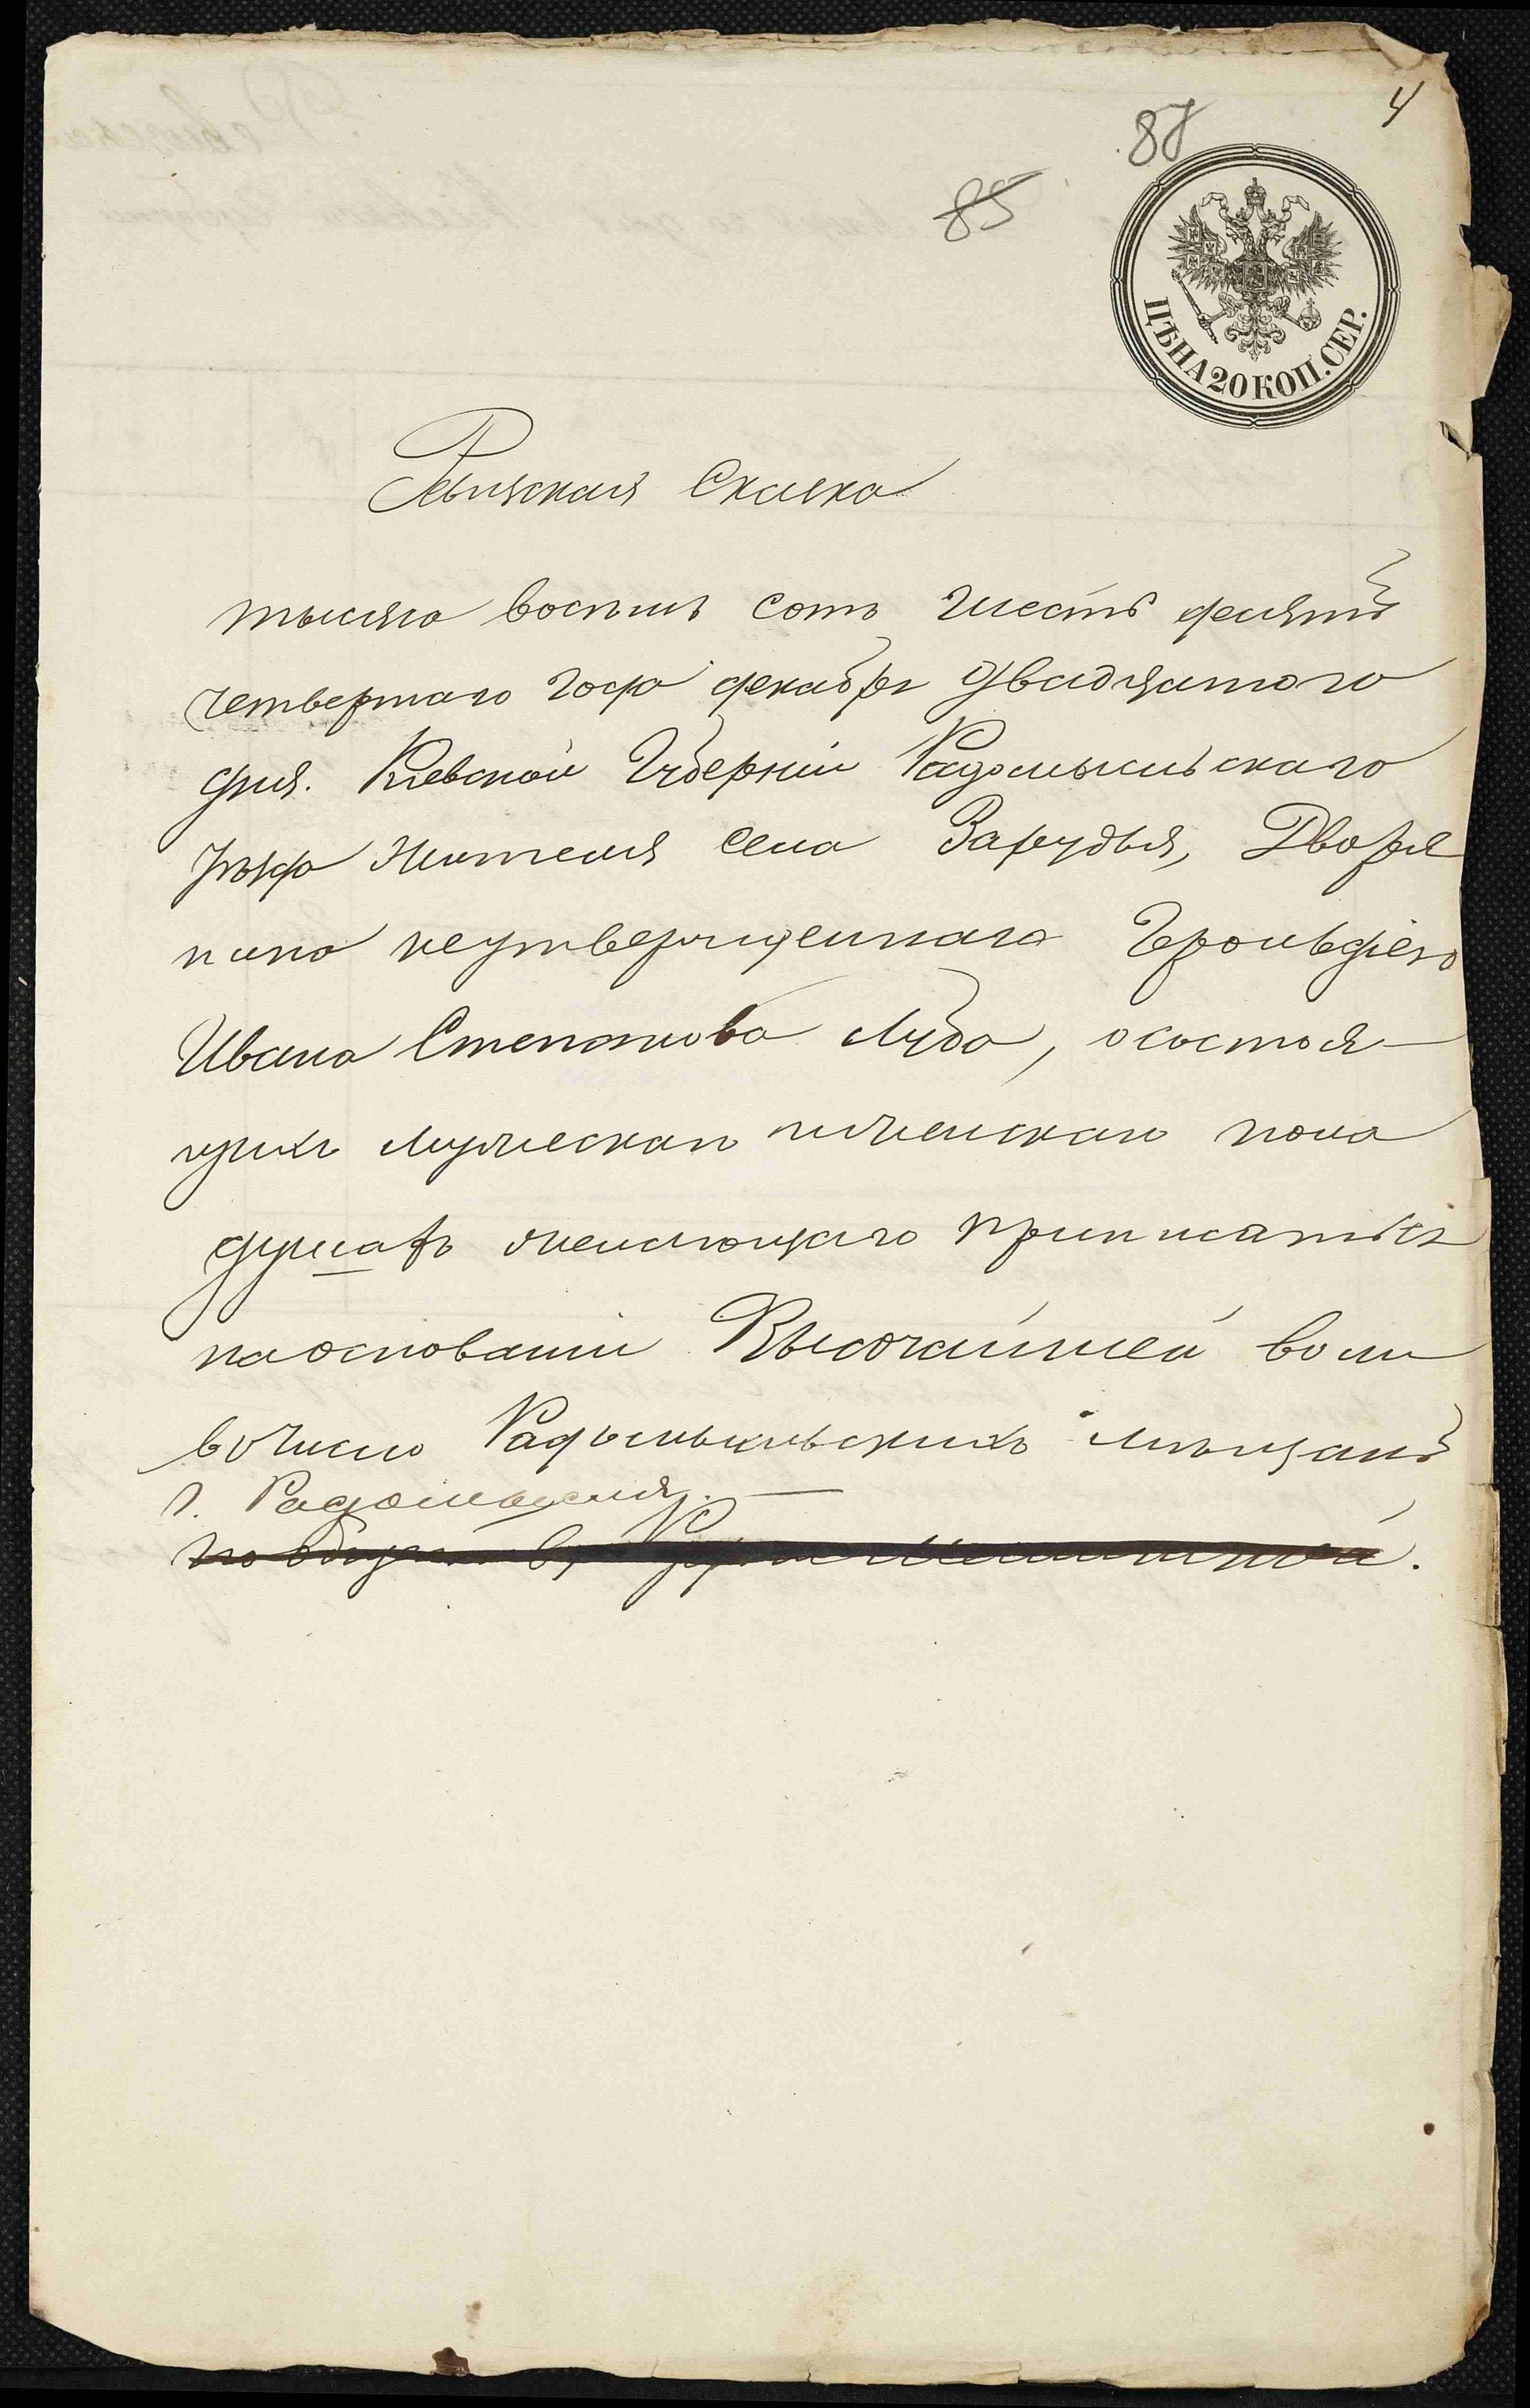 4
87
85
ЦѢНА 20 КОП. СЕР.
Ревизская Сказка
тысяча восемь сотъ шесть десятъ
четвертаго года декабря двадцатого
дня. Киевской Губерніи Радомысльскаго
уѣзда жителя села Зарудья, Дворя
нина неутвержденнаго Герольдіею
Ивана Степанова Луба, осостоя-
щихъ мужеска и женска пола
душахъ желающаго приписаться
наоснованіи Высочайшей воли
вочисло Радомысльскихъ мѣщанъ
г. Радомысля.